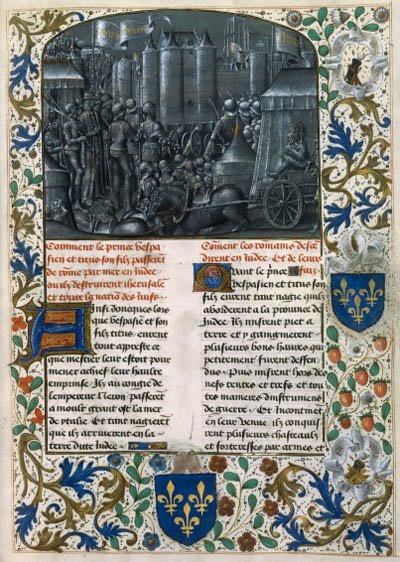 Comment le prince Vespa
sien et titus son
filz passerent
de rome par mer en iudee
ou ilz destruirent iherusalem
et toute la nacion des iuifz.
Ainsi doncques lors
que vespasie et son
filz titus eurent
tout apreste ce
que mestier leur estoit pour
mener achief leur haulte
emprinse Ilz au congie de
lempereur Neron passerent
a moult grant ost la mer
de ytalie Et tant nagierent
que ilz arriuerent en la
terre dite Iudee
Coment les romains desce
dirent en Iudee Et de leurs
faiz
Quant le prince
vespasien et titus son
filz eurent tant nagie quilz
aborderent a la prouince de
Iudee Ilz misrent pie a
terre et y gaingnerent
plusieurs bons haures qui
petitement furent deffen
dus Puis misrent hors des
nefs tentes et trefs et tou
tes manieres dinstrumens
de guerre Et Incontinent
en leur venue ilz conqui
rent plusieurs chasteaulx
et forteresses par armes et